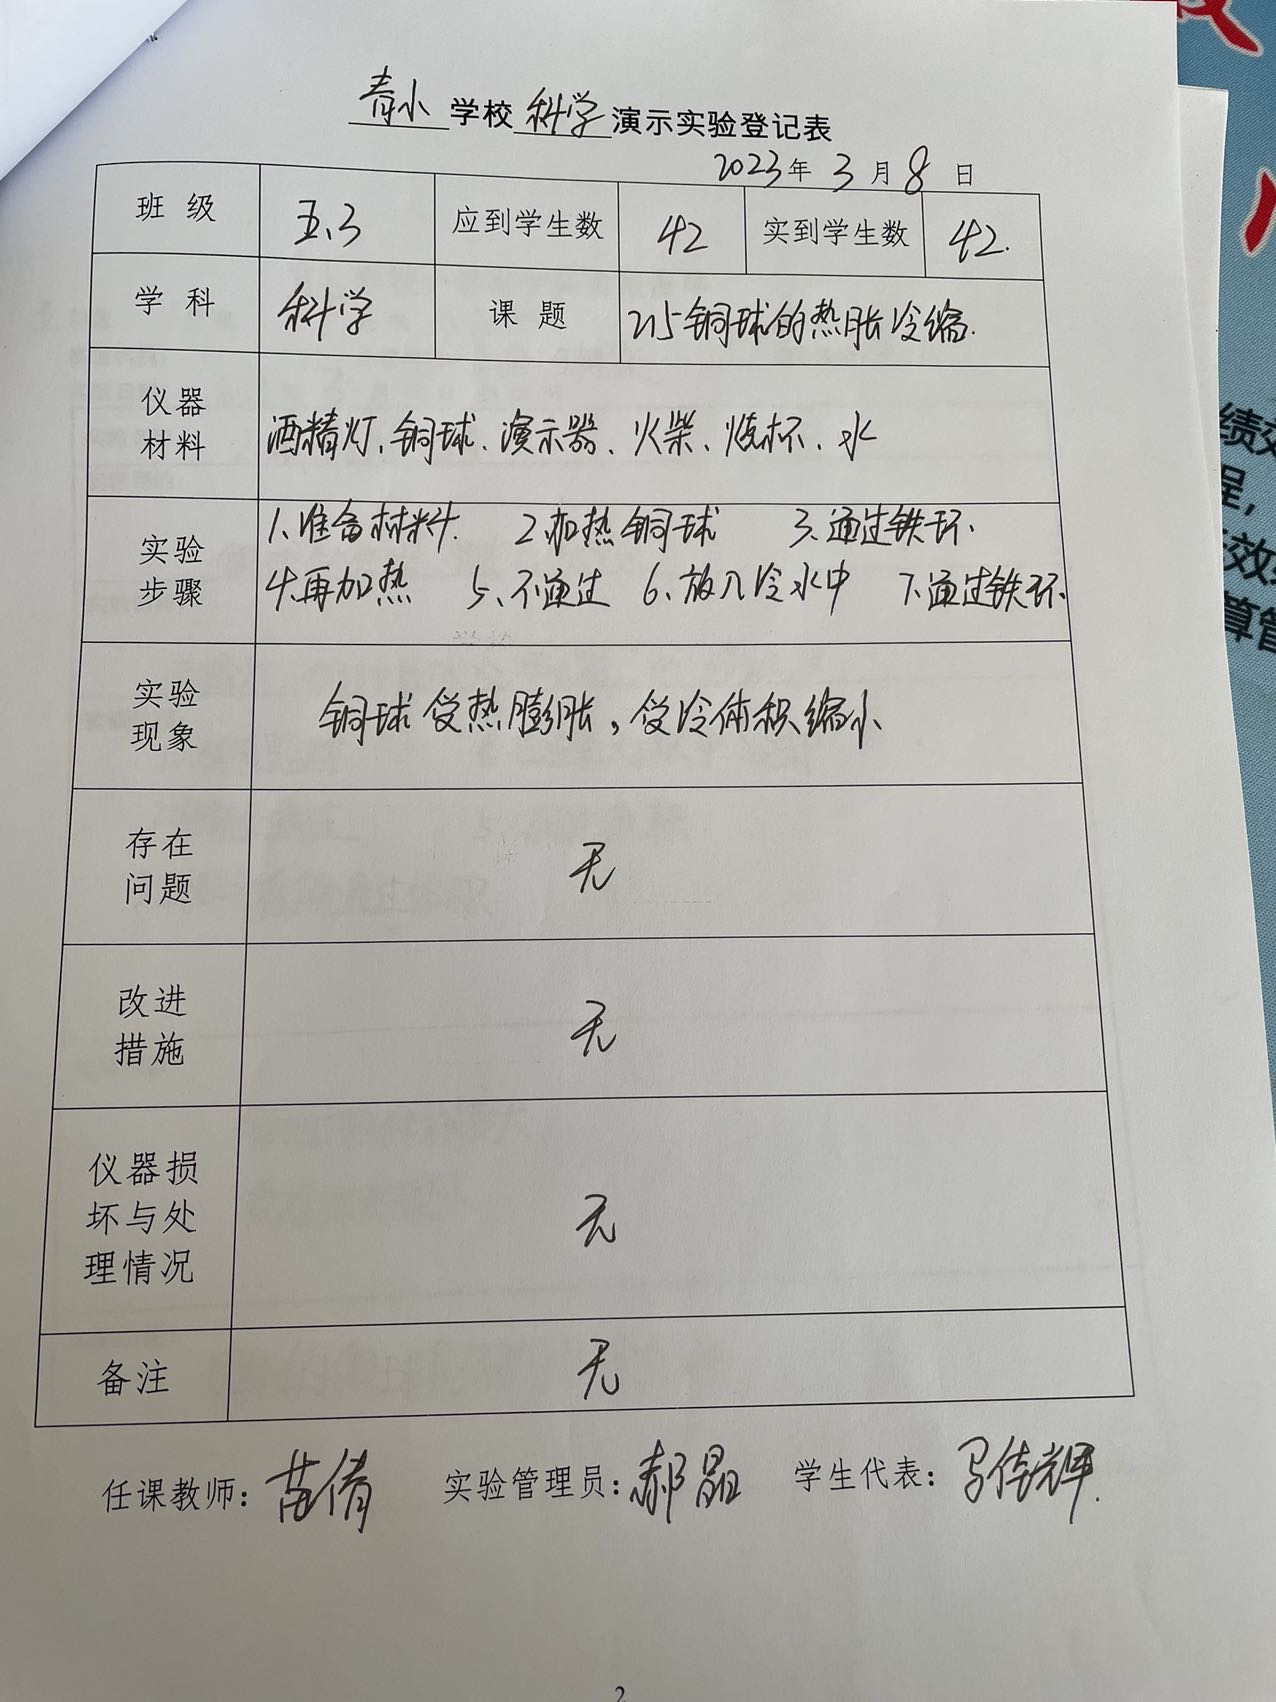 青小学校科学演示实验登记表
2023年3月8日
班级 五.3 应到学生数 42 实到学生数 42.
学科 科学 课题 215铜球的热胀冷缩.
仪器
材料
酒精灯、铜球、演示器、火柴、烧杯、水
实验
步骤
1、准备材料. 2.加热铜球 3、通过铁环.
4.再加热 5、不通过 6、放入冷水中 7.通过铁环.
实验
现象
铜球受热膨胀,受冷体积缩小
存在
问题
无
改进
措施
无
仪器损
坏与处
理情况
无
备注 无
任课教师:苗倩 实验管理员:郝晶 学生代表:马佳辉.
2
绩效
程,
效
算管